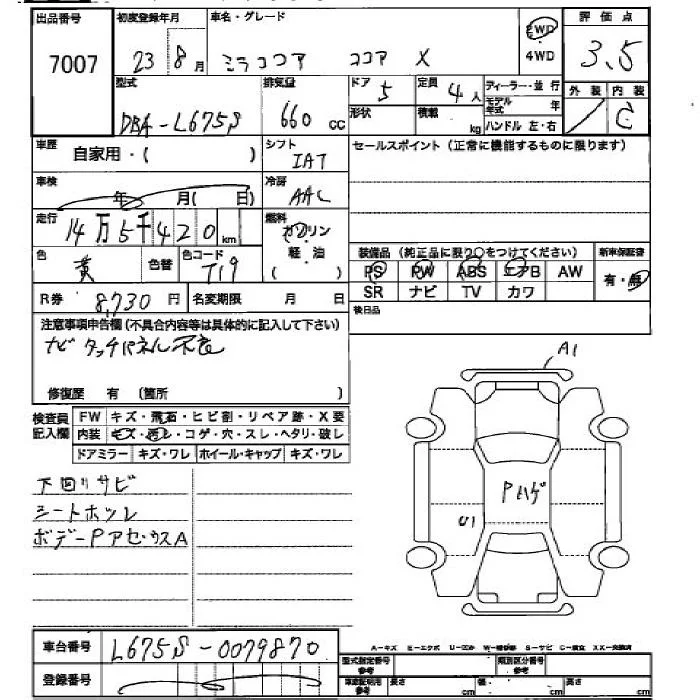 出品番号 初度登録年月 車名・グレード 評価点
7007 23 8月 ミラココア ココア X 2WD ・ 4WD 3.5
型式 排気量 ドア 定員 ディーラー・並行 外装 内装
DBA-L675S 660 cc 5 4人 モデル年式 年 C
形状 積載 kg ハンドル 左・右
車歴 自家用・( ) シフト IAT セールスポイント (正常に機能するものに限ります)
車検 年 月( 日) 冷房 AAC
走行 14万5千420km 燃料 ガソリン・軽油
色 黄 色替 色コード T19 装備品 (純正品に限り○をつけてください) 新車保証書
PS PW ABS エアB AW 有・無
R券 8,730円 名変期限 月 日 SR ナビ TV カワ
注意事項申告欄 (不具合内容等は具体的に記入して下さい) 後日品
ナビ タッチパネル不良
修復歴 有 (箇所 )
A1
検査員記入欄 FW キズ・飛石・ヒビ割・リペア跡・X要
内装 キズ・汚レ・コゲ・穴・スレ・ヘタリ・破レ
ドアミラー キズ・ワレ ホイール・キャップ キズ・ワレ
下回リサビ
Pハゲ
シートホツレ
U1
ボデーPアセ・カスA
車台番号 L675S-0079870
A-キズ E-エクボ U-凹み W-補修跡 S-サビ C-腐食 XX-交換済
登録番号 型式指定番号 参考 類別区分番号 参考
車庫証明用参考 長さ cm 幅 cm 高さ cm